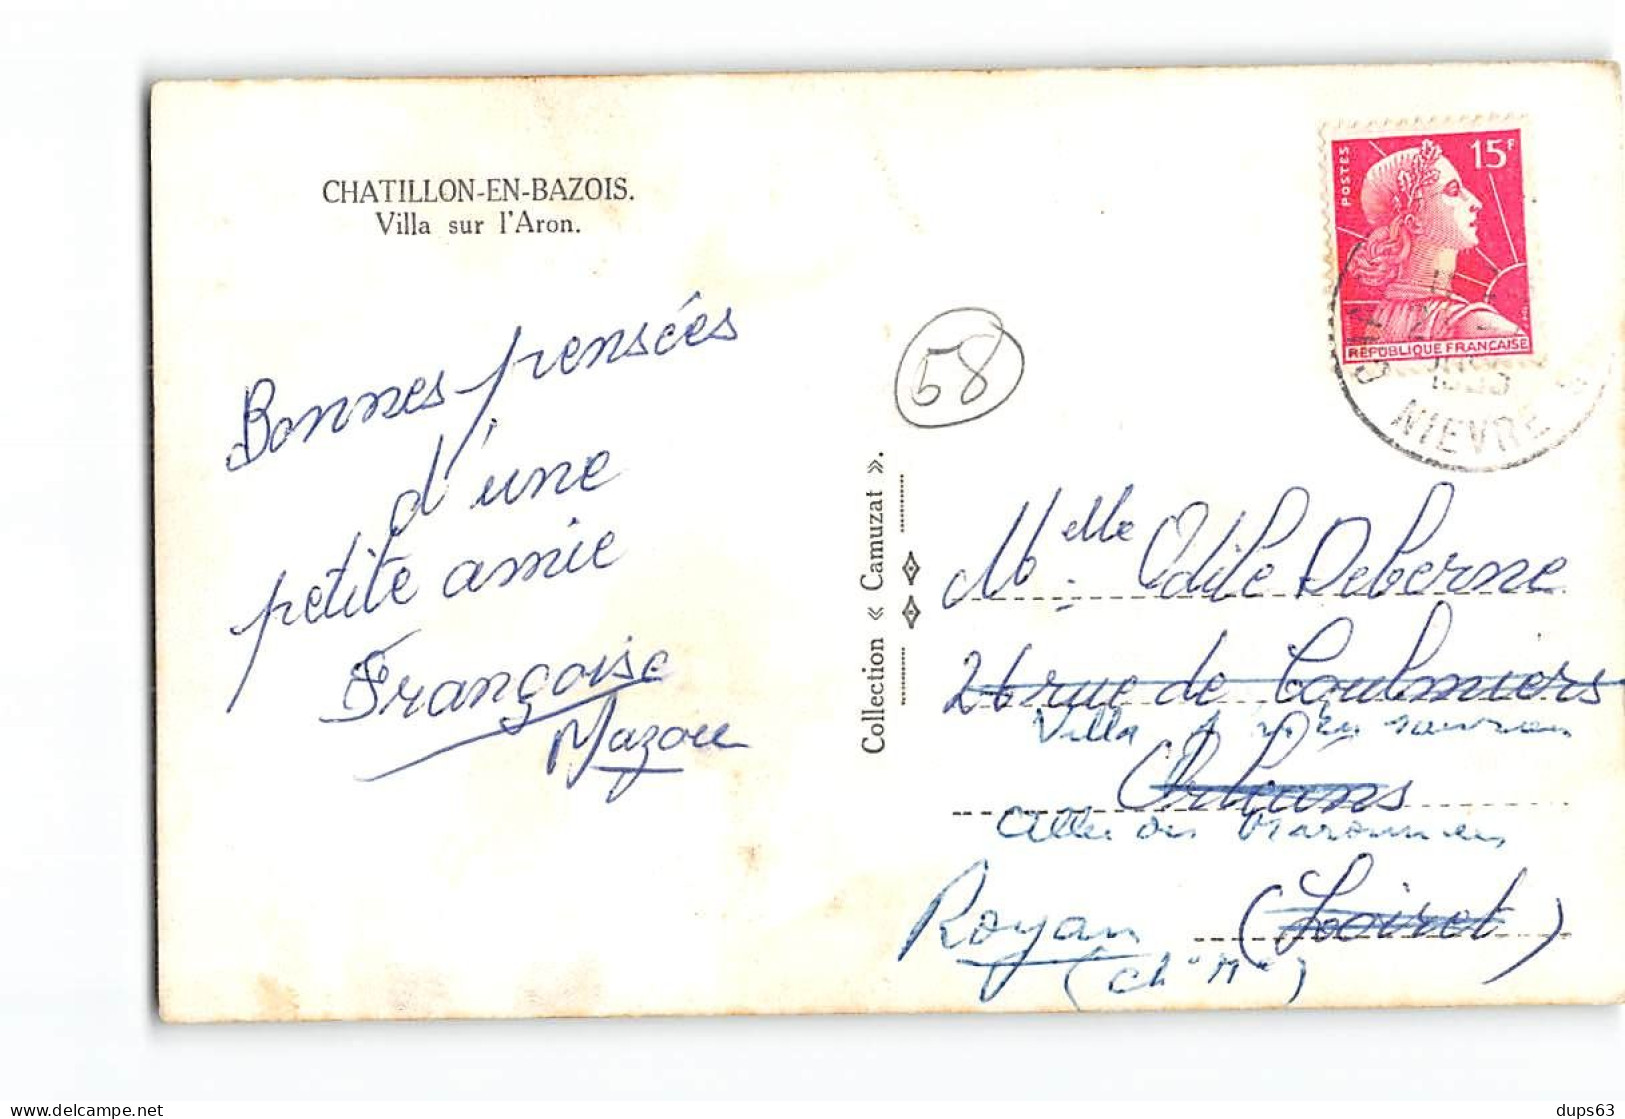 CHATILLON-EN-BAZOIS.
Villa sur l'Aron.
Bonnes pensées
d'une
petite amie
Françoise
Mazou
58
Collection « Camuzat ».
POSTES
15F
REPUBLIQUE FRANÇAISE
NIEVRE
Melle Odile Deberne
26 rue de Coulmiers
Villa
Orléans
Allée des Marronniers
Royan
(Loiret)
(Chte Mme)
delcampe.net
dups63